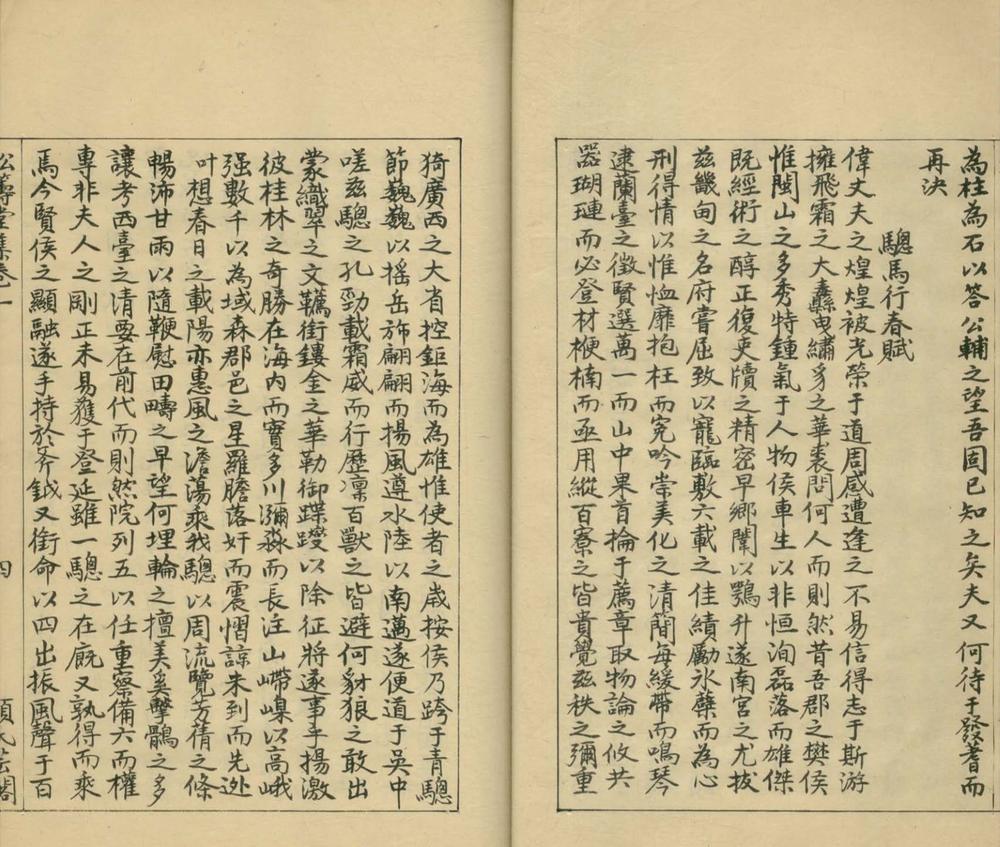 為柱為石以答公輔之望吾固已知之矣夫又何待于發蓍而
再決
驄馬行春賦
偉丈夫之煌煌被光榮于道周感遭逢之不易信得志于斯游
擁飛霜之大纛曳繡豸之華裘問何人而則然昔吾郡之樊侯
惟閩山之多秀特鍾氣于人物侯車生以非恒洵磊落而雄傑
既經術之醇正復吏牘之精密早鄉闈以鶚升遂南宮之尤拔
茲畿甸之名府嘗屈致以寵臨敷六載之佳績勵氷蘗而為心
刑得情以惟恤靡抱枉而寃吟崇美化之清簡每緩帶而鳴琴
逮蘭臺之徵賢選萬一而山中果首掄于薦章取物論之攸共
器瑚璉而必登材楩楠而亟用縱百寮之皆貴覺茲秩之彌重
猗廣西之大省控鉅海而為雄惟使者之歲按侯乃跨于青驄
節巍巍以摇岳斾翩翩而揚風遵水陸以南邁遂便道于吳中
嗟茲驄之孔勁載霜威而行歷凛百獸之皆避何豺狼之敢出
蒙織翠之文韉銜鏤金之華勒御蹀躞以除征將遂事乎揚激
彼桂林之奇勝在海内而實多川瀰淼而長注山嵽嵲以高峩
强數千以為域森郡邑之星羅膽落奸而震慴諒未到而先逖
叶想春日之載陽亦惠風之澹蕩乘我驄以周流覽芳蒨之條
暢沛甘雨以隨鞭慰田疇之早望何埋輪之擅美奚擊鶻之多
讓考西臺之清要在前代而則然院列五以任重察備六而權
專非夫人之剛正未易獲于登延雖一驄之在廐又孰得而乘
焉今賢侯之顯融遂手持於斧鉞又銜命以四出振風聲于百
松籌堂集卷一
四